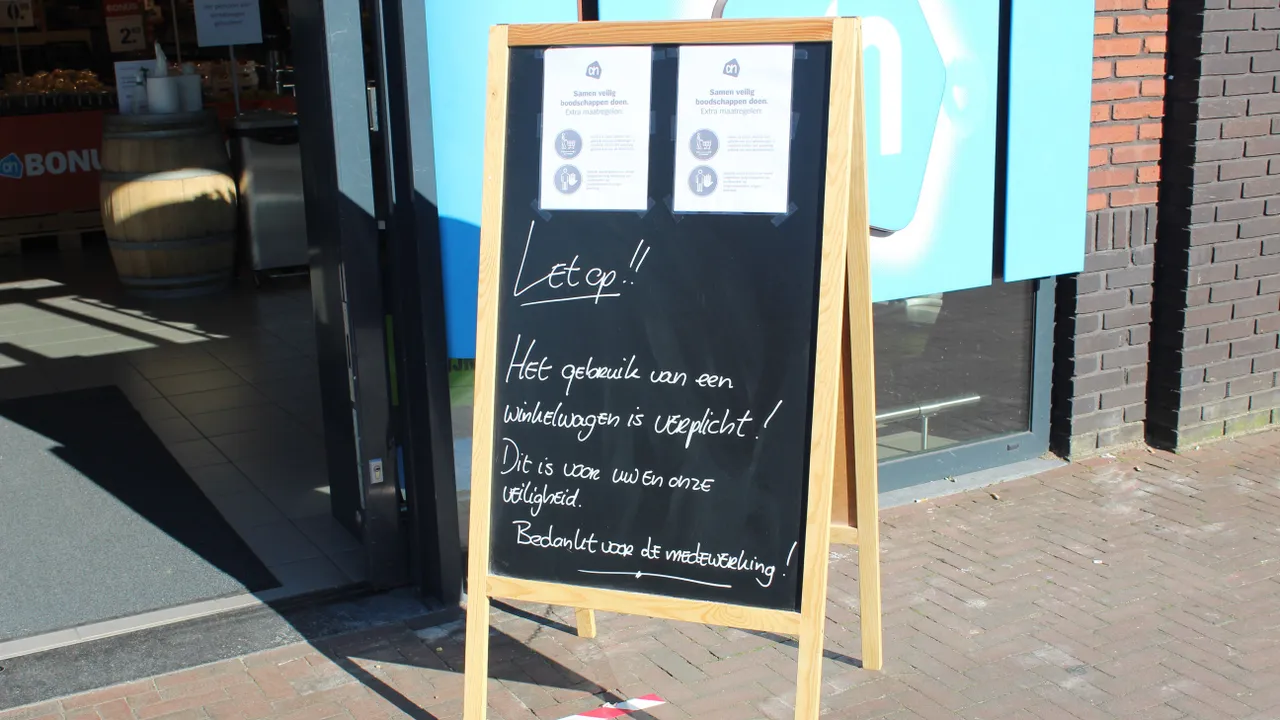 BONUS
2.
BONU
ah
Samen veilig
boodschappen doen.
Extra maatregelen
ah
Samen veilig
boodschappen doen.
Extra maatregelen
Let op!!
Het gebruik van een
winkelwagen is verplicht!
Dit is voor uw en onze
veiligheid.
Bedankt voor de medewerking!